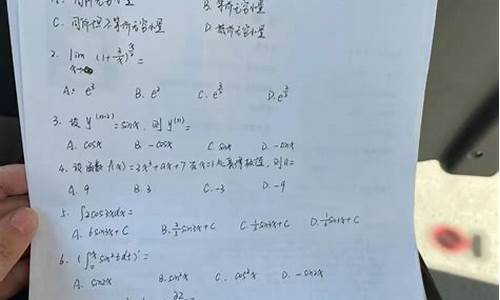 A. 同阶无穷小量 B. 等阶无穷小量
C. 同阶但不等阶无穷小量 D.
2. lim x→∞ (1+ 2/x) =
A. e³ B. e² C. e D. e
3. 设 y⁽ⁿ⁻²⁾ = sinx, 则 y⁽ⁿ⁾ =
A. cosx B. -cosx C. sinx D. -sinx
4. 设函数 f(x) = 2x²+ax+7 在 x=1 处取得极值, 则 a=
A. 9 B. 3 C. -3 D. -9
5. ∫2cos3xdx =
A. 6sin3x+C B. 2/3 sin3x+C C. 1/3 sin3x+C D. 1/6 sin3x+C
6. (∫₀ˣ sin²tdt)' =
A. sin2x B. sin²x C. cos²x D. -sin2x